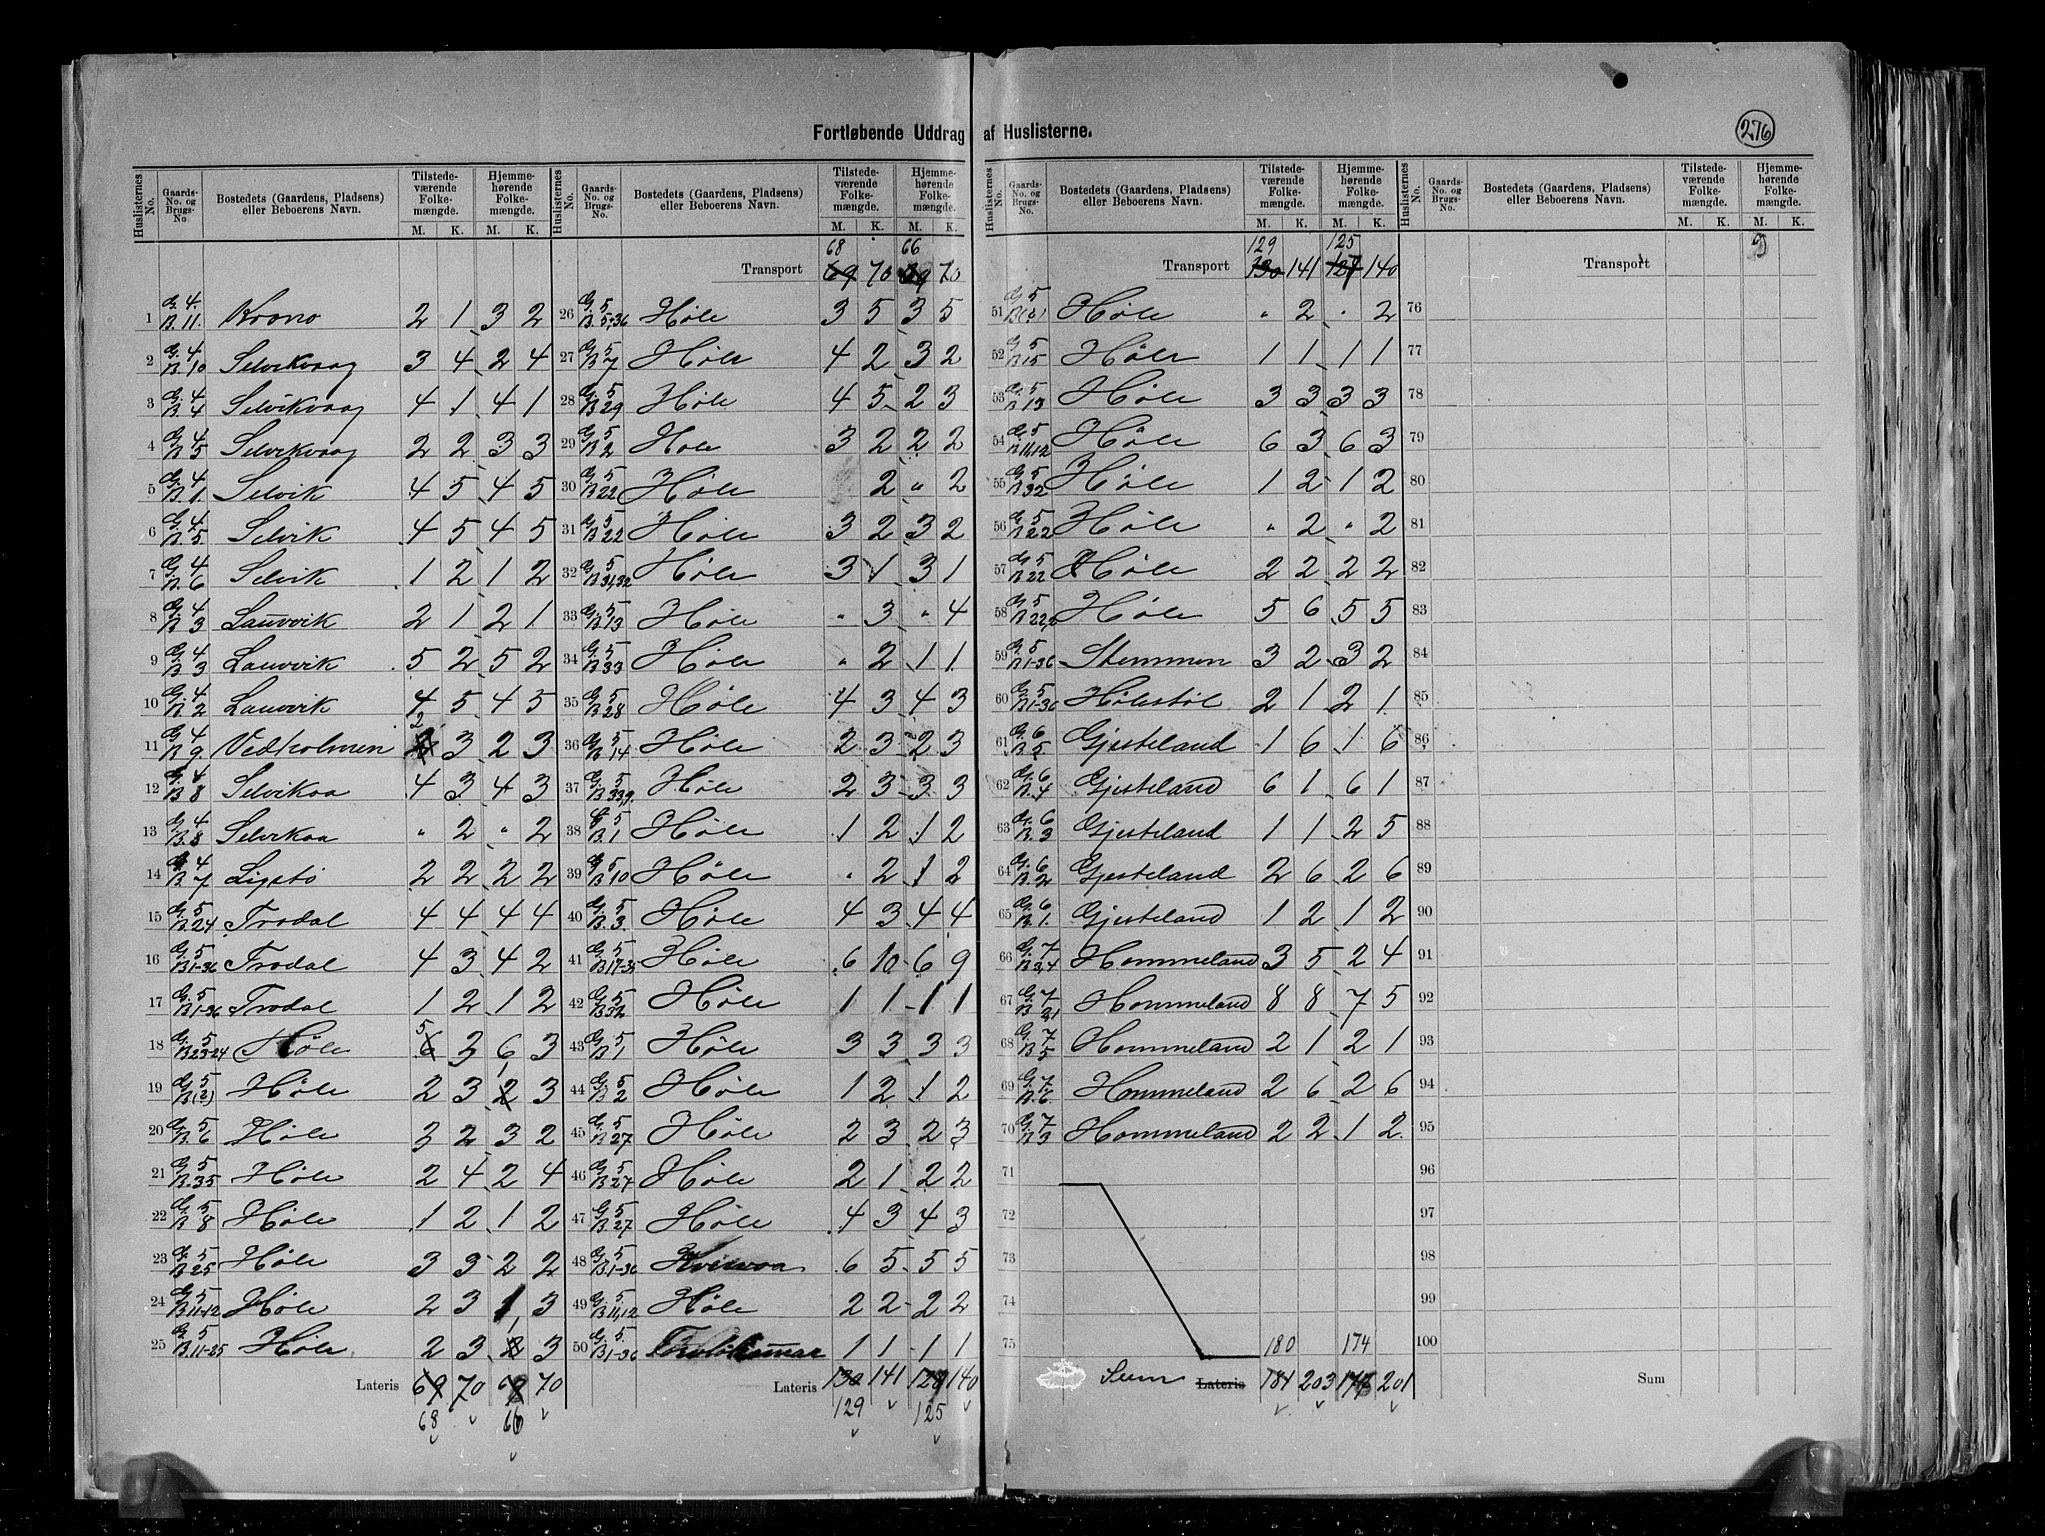 Fortløbende Uddrag af Huslisterne.
276
Huslisternes No. Gaards-No. og Brugs-No. Bostedets (Gaardens, Pladsens) eller Beboerens Navn. Tilstedeværende Folkemængde. M. K. Hjemmehørende Folkemængde. M. K.
1 G. 4 B. 11. Krono 2 1 3 2
2 G. 4 B. 10 Selvikvaag 3 4 2 4
3 G. 4 B. 4 Selvikvaag 4 1 4 1
4 G. 4 B. 5 Selvikvaag 2 2 3 3
5 G. 4 B. 1. Selvik 4 5 4 5
6 G. 4 B. 5. Selvik 4 5 4 5
7 G. 4 B. 6 Selvik 1 2 1 2
8 G. 4 B. 3 Lauvvik 2 1 2 1
9 G. 4 B. 3 Lauvvik 5 2 5 2
10 G. 4 B. 2 Lauvvik 4 5 4 5
11 G. 4 B. 9. Vedholmen 2 3 2 3
12 G. 4 B. 8 Selvikaa 4 3 4 3
13 G. 4 B. 8 Selvikaa " 2 " 2
14 G. 4 B. 7 Ligstø 2 2 2 2
15 G. 5 B. 24 Trodal 4 4 4 4
16 G. 5 B. 1-36 Trodal 4 3 4 2
17 G. 5 B. 1-36 Trodal 1 2 1 2
18 G. 5 B. 23-24 Høle 5 6 3 6 3
19 G. 5 B. (2) Høle 2 3 1 2 3
20 G. 5 B. 6 Høle 3 2 3 2
21 G. 5 B. 35 Høle 2 4 2 4
22 G. 5 B. 8 Høle 1 2 1 2
23 G. 5 B. 25 Høle 3 3 2 2
24 G. 5 B. 11-12 Høle 2 3 1 3
25 G. 5 B. 11-25 Høle 2 3 1 2 3
Lateris 69 70 69 70
68 66
Huslisternes No. Gaards-No. og Brugs-No. Bostedets (Gaardens, Pladsens) eller Beboerens Navn. Tilstedeværende Folkemængde. M. K. Hjemmehørende Folkemængde. M. K.
68 66
Transport 69 70 69 70
26 G. 5 B. 5,36 Høle 3 5 3 5
27 G. 5 B. 7 Høle 4 2 3 2
28 G. 5 B. 29 Høle 4 5 2 3
29 G. 5 B. 2 Høle 3 2 2 2
30 G. 5 B. 22 Høle 2 " 2
31 G. 5 B. 22 Høle 3 2 3 2
32 G. 5 B. 31,32 Høle 3 1 3 1
33 G. 5 B. 13 Høle " 3 " 4
34 G. 5 B. 33 Høle " 2 1 1
35 G. 5 B. 28 Høle 4 3 4 3
36 G. 5 B. 14 Høle 2 3 2 3
37 G. 5 B. 33,9 Høle 2 3 3 3
38 G. 5 B. 1 Høle 1 2 1 2
39 G. 5 B. 10 Høle " 2 1 2
40 G. 5 B. 3. Høle 4 3 4 4
41 G. 5 B. 17-35 Høle 6 10 6 9
42 G. 5 B. 32 Høle 1 1 1 1
43 G. 5 B. 1 Høle 3 3 3 3
44 G. 5 B. 2 Høle 1 2 1 2
45 G. 5 B. 27 Høle 2 3 2 3
46 G. 5 B. 27 Høle 2 1 2 2
47 G. 5 B. 27 Høle 4 3 4 3
48 G. 5 B. 1-36 6 5 5 5
49 G. 5 B. 11,12 Høle 2 2 2 2
50 G. 5 B. 1-36 1 1 1 1
Lateris 130 141 128 140
129 125
Huslisternes No. Gaards-No. og Brugs-No. Bostedets (Gaardens, Pladsens) eller Beboerens Navn. Tilstedeværende Folkemængde. M. K. Hjemmehørende Folkemængde. M. K.
129 125
Transport 130 141 128 140
51 G. 5 Høle " 2 " 2
52 G. 5 B. 15 Høle 1 1 1 1
53 G. 5 B. 13 Høle 3 3 3 3
54 G. 5 B. 11,12 Høle 6 3 6 3
55 G. 5 B. 32 Høle 1 2 1 2
56 G. 5 B. 22 Høle " 2 " 2
57 G. 5 B. 22 Høle 2 2 2 2
58 G. 5 B. 22 Høle 5 6 5 5
59 G. 5 B. 1-36 Stemmen 3 2 3 2
60 G. 5 B. 1-36 Hølestøl 2 1 2 1
61 G. 6 B. 5 Gjesteland 1 6 1 6
62 G. 6 B. 4 Gjesteland 6 1 6 1
63 G. 6 B. 3 Gjesteland 1 1 2 5
64 G. 6 B. 2 Gjesteland 2 6 2 6
65 G. 6 B. 1. Gjesteland 1 2 1 2
66 G. 7 B. 2,4 Hommeland 3 5 2 4
67 G. 7 B. 2,1 Hommeland 8 8 7 5
68 G. 7 B. 5 Hommeland 2 1 2 1
69 G. 7 B. 6 Hommeland 2 6 2 6
70 G. 7 B. 3 Hommeland 2 2 1 2
71
72
73
74
75 180 174
Sum Lateris 181 203 177 201
Huslisternes No. Gaards-No. og Brugs-No. Bostedets (Gaardens, Pladsens) eller Beboerens Navn. Tilstedeværende Folkemængde. M. K. Hjemmehørende Folkemængde. M. K.
Transport
76
77
78
79
80
81
82
83
84
85
86
87
88
89
90
91
92
93
94
95
96
97
98
99
100
Sum